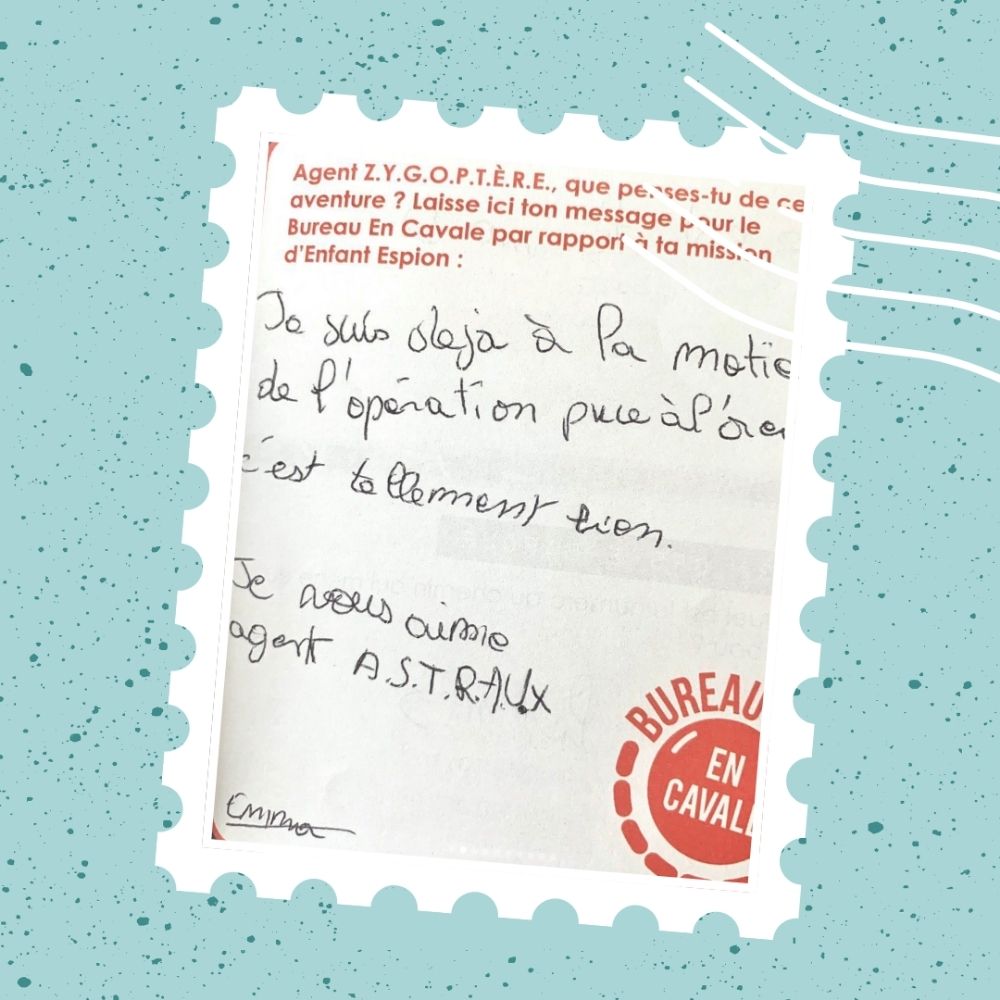 Agent Z.Y.G.O.P.T.È.R.E., que penses-tu de ce
aventure ? Laisse ici ton message pour le
Bureau En Cavale par rapport à ta mission
d'Enfant Espion :
Je suis deja à la motie
de l'opération puce à l'ore
c'est tellement bien.
Je vous aime
agent A.S.T.R.A.U.X
Emma
BUREAU
EN
CAVAL